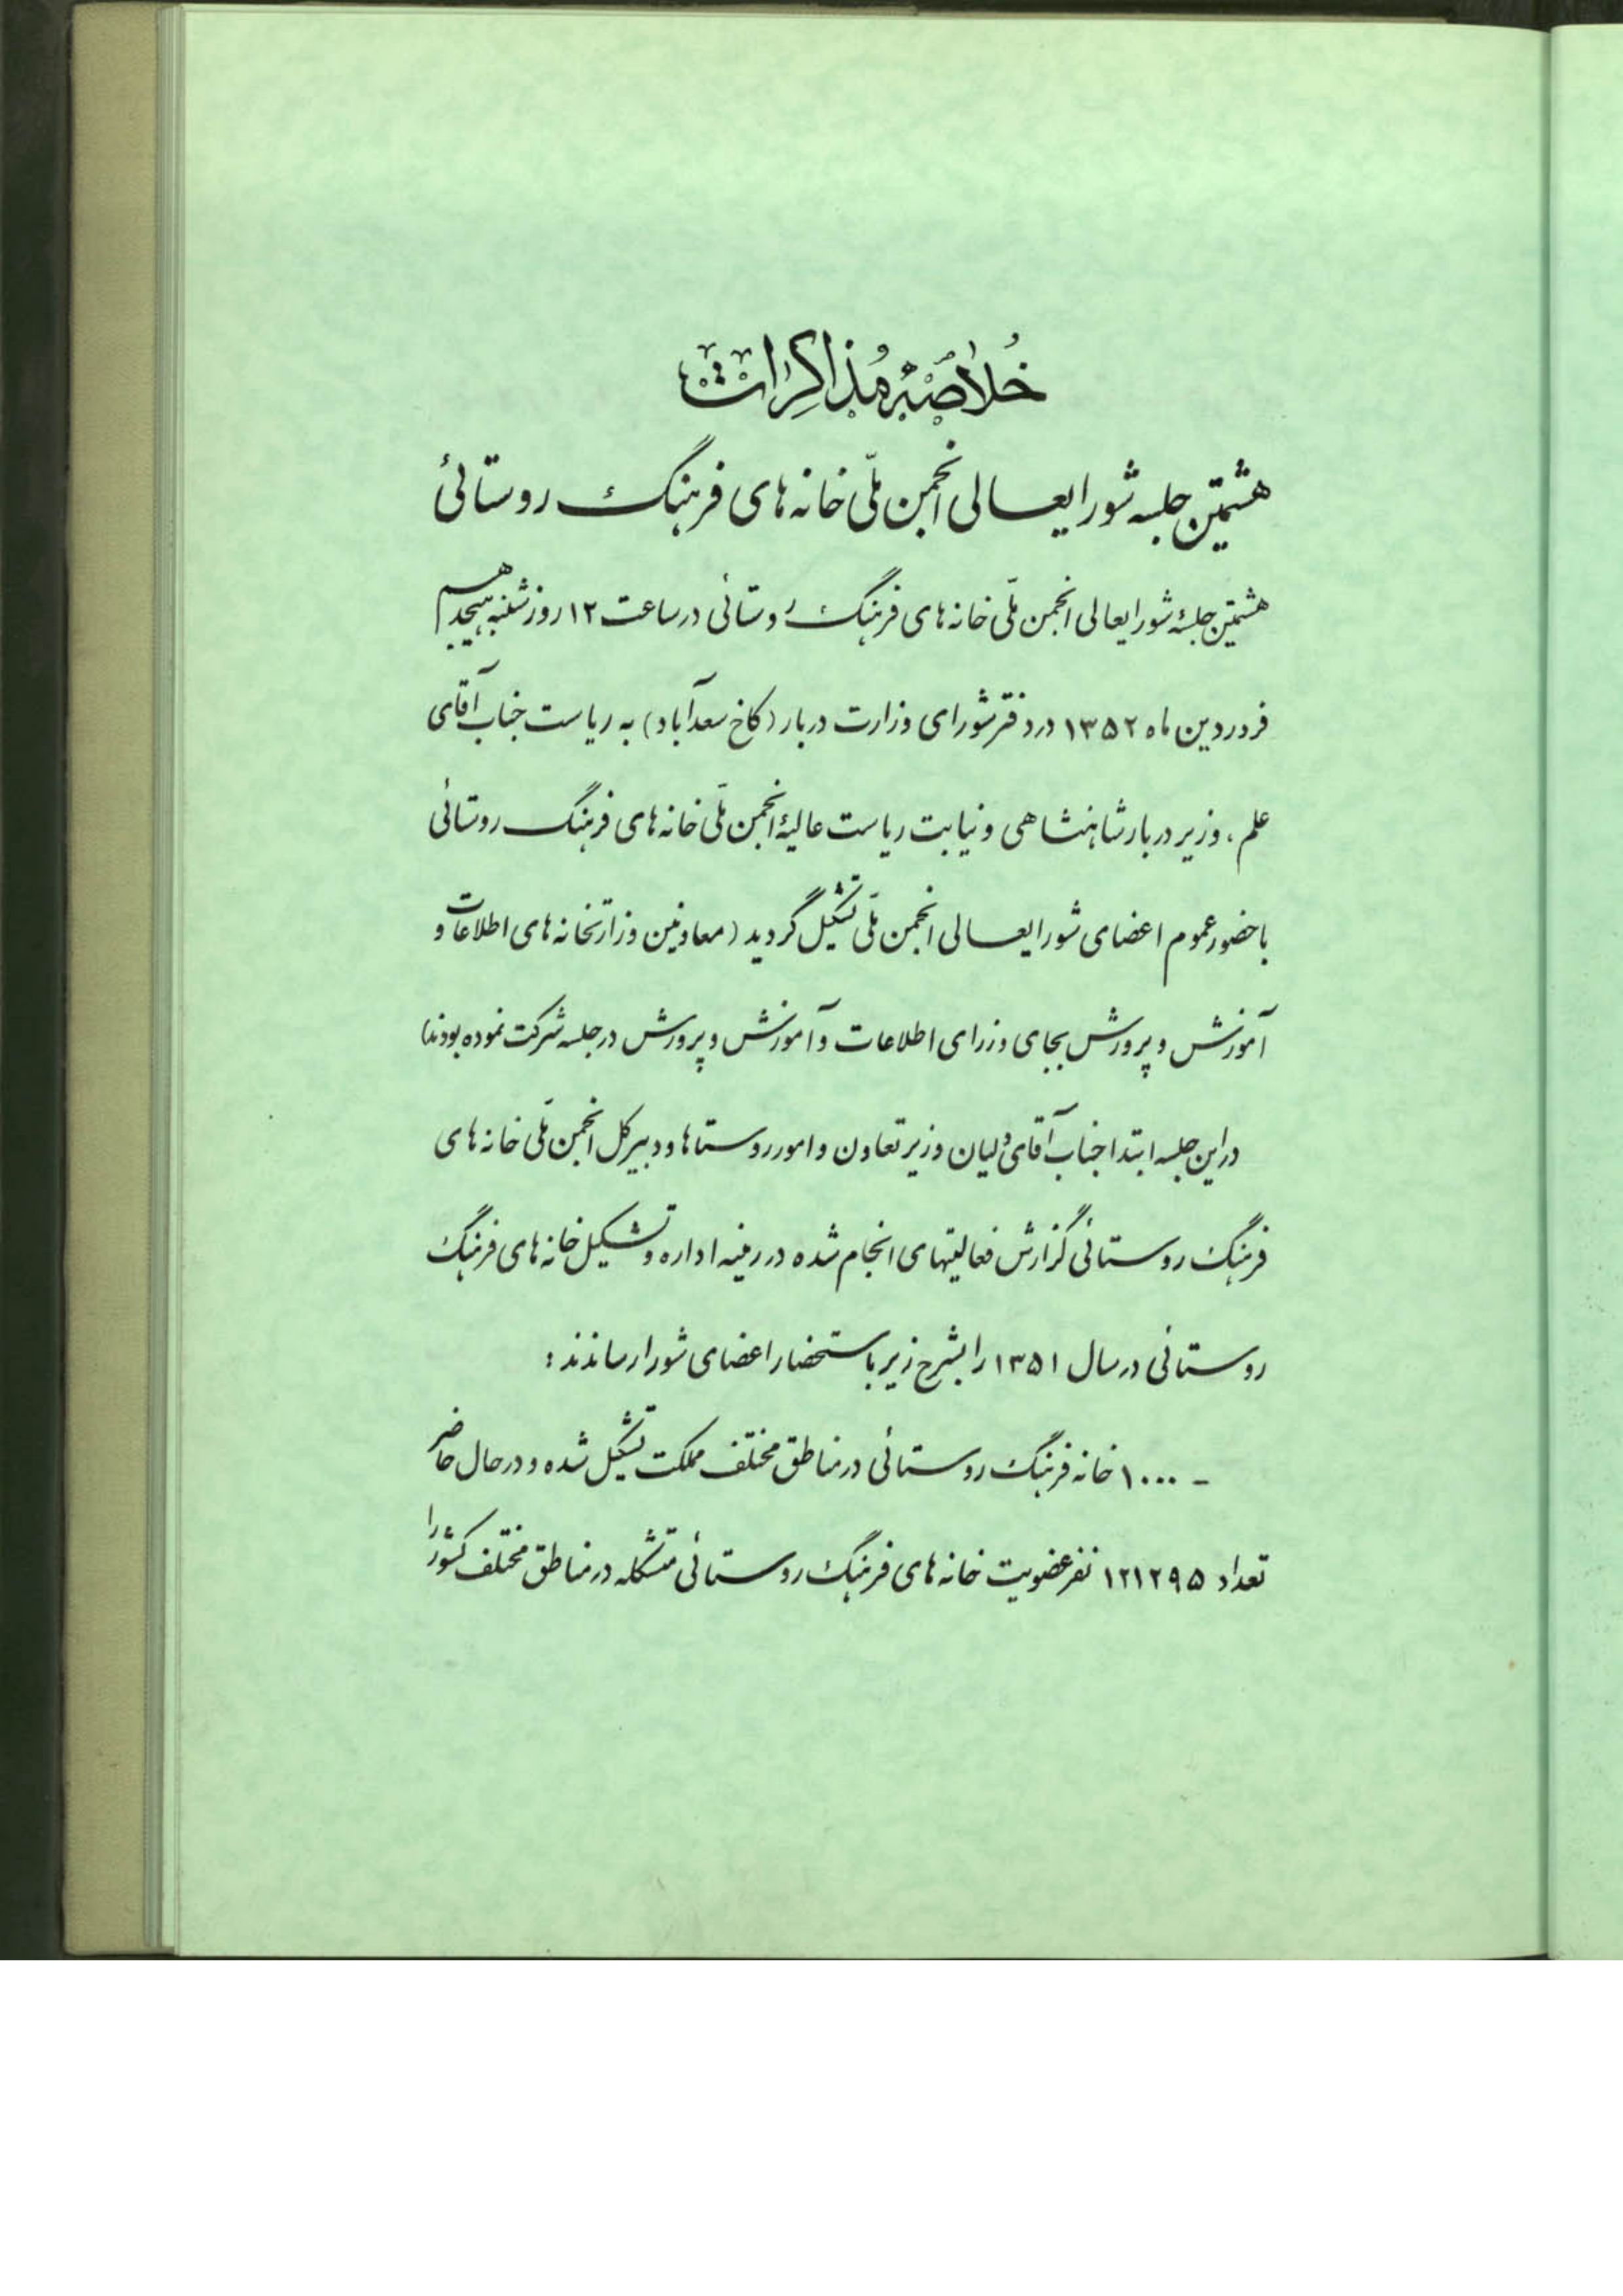 خُلاصَۀ مُذاکِرات
هشتمین جلسه شورایعالی انجمن ملّی خانه های فرهنگ روستائی
هشتمین جلسۀ شورایعالی انجمن ملّی خانه های فرهنگ روستائی در ساعت ۱۲ روز شنبه هیجدهم
فروردین ماه ۱۳۵۲ در دفتر شورای وزارت دربار (کاخ سعدآباد) به ریاست جناب آقای
علم، وزیر دربار شاهنشاهی و نیابت ریاست عالیۀ انجمن ملّی خانه های فرهنگ روستائی
با حضور عموم اعضای شورایعالی انجمن ملّی تشکیل گردید (معاونین وزارتخانه های اطلاعات و
آموزش و پرورش بجای وزرای اطلاعات و آموزش و پرورش در جلسه شرکت نموده بودند)
در این جلسه ابتدا جناب آقای ولیان وزیر تعاون و امور روستاها و دبیر کل انجمن ملّی خانه های
فرهنگ روستائی گزارش فعالیتهای انجام شده در زمینه اداره و تشکیل خانه های فرهنگ
روستائی در سال ۱۳۵۱ را بشرح زیر باستحضار اعضای شورا رساندند :
- ۱۰۰۰ خانه فرهنگ روستائی در مناطق مختلف مملکت تشکیل شده و در حال حاضر
تعداد ۱۲۱۲۹۵ نفر عضویت خانه های فرهنگ روستائی متشکله در مناطق مختلف کشور را